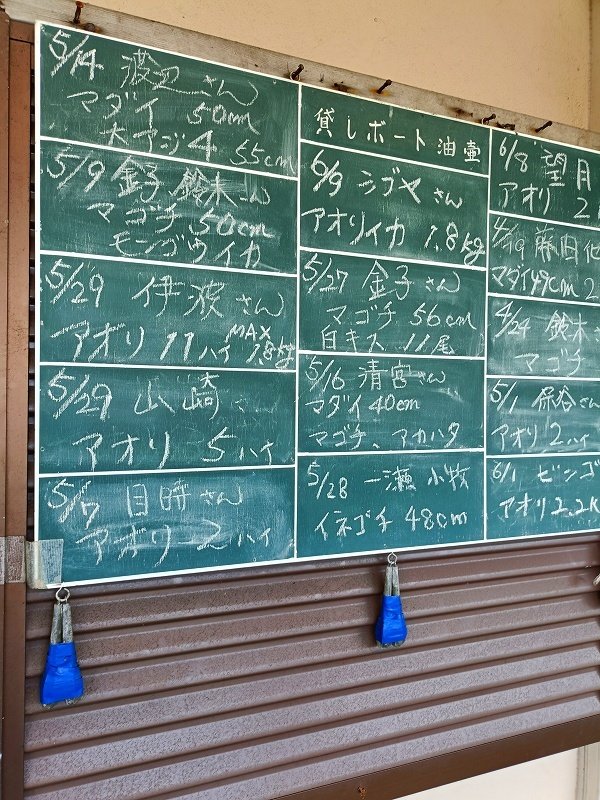 5/14 渡辺さん
マダイ 50cm
大アジ4 55cm
5/9 金子 鈴木さん
マゴチ 50cm
モンゴウイカ
5/29 伊波さん
アオリ 11ハイ MAX 1.8kg
5/29 山崎さん
アオリ 5ハイ
5/7 目時さん
アオリ 2ハイ
貸しボート油壷
6/9 シゲヤさん
アオリイカ 1.8kg
5/27 金子さん
マゴチ 56cm
白キス 11尾
5/16 清宮さん
マダイ 40cm
マゴチ、アカハタ
5/28 一瀬 小牧
イネゴチ 48cm
6/8 望月
アオリ 2
藤田
マダイ49cm 2
4/24 鈴木さん
マゴチ
5/1 保谷さん
アオリ 2ハイ
6/1 ビンゴ
アオリ 2.2K